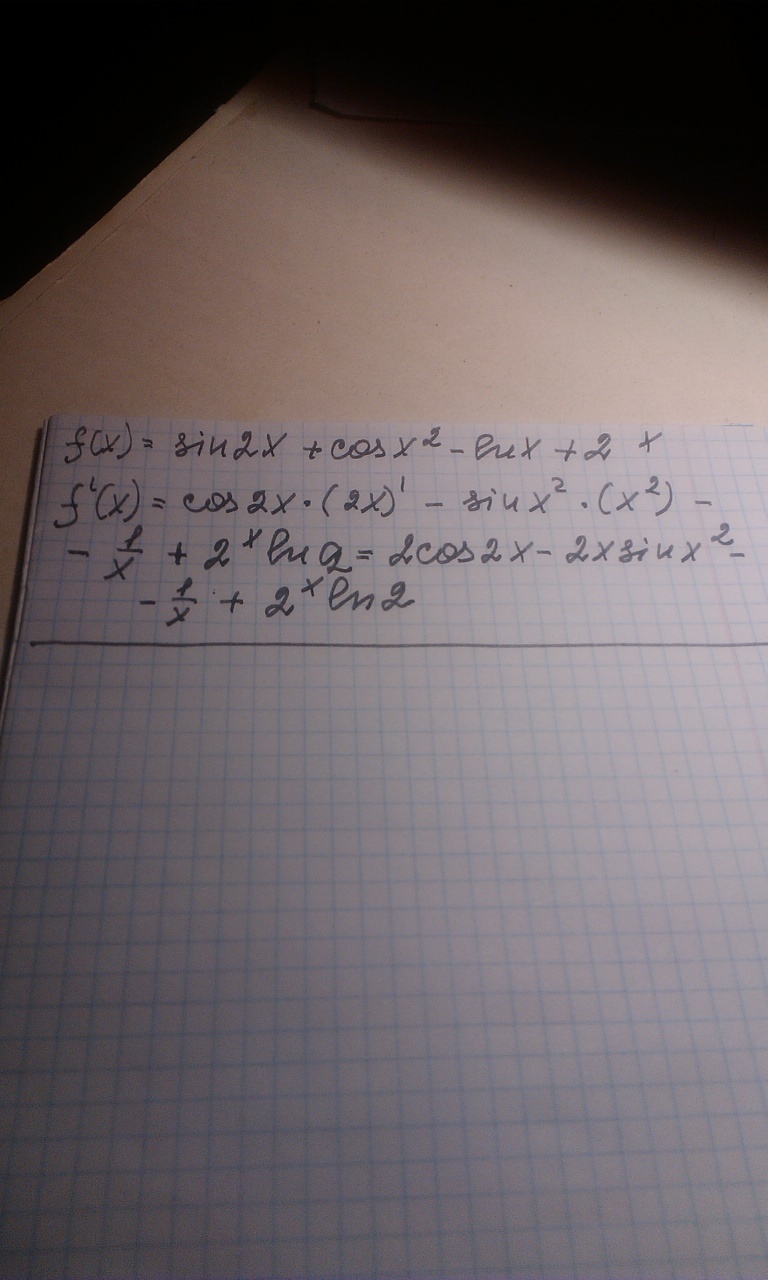 f(x) = sin2x + cosx² - lnx + 2ˣ
f'(x) = cos2x·(2x)' - sinx²·(x²) -
- 1/x + 2ˣ ln2 = 2cos2x - 2xsinx² -
- 1/x + 2ˣ ln2